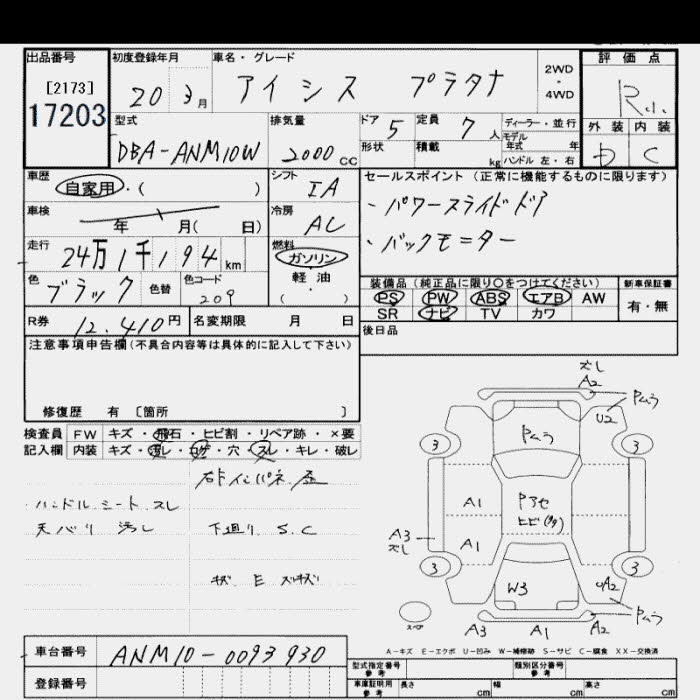 出品番号 初度登録年月 車名・グレード 評価点
[2173] 20 3月 アイシス プラタナ 2WD・4WD R
17203
型式 排気量 ドア 5 定員 7人 ディーラー・並行 外装 内装
DBA-ANM10W 2000CC 形状 積載 kg モデル年式 年 ハンドル 左・右 D C
車歴 自家用・( ) シフト IA セールスポイント (正常に機能するものに限ります)
・パワースライドドア
車検 年 月(日) 冷房 AC
・バックモニター
走行 24万1千194km 燃料 ガソリン・軽油・( )
色 ブラック 色替 色コード 209
装備品 (純正品に限り〇をつけてください) 新車保証書
PS PW ABS エアB AW 有・無
SR ナビ TV カワ
R券 12,410円 名変期限 月 日 後日品
注意事項申告欄(不具合内容等は具体的に記入して下さい)
修復歴 有 [箇所 ]
検査員 FW キズ・飛石・ヒビ割・リペア跡・×要
記入欄 内装 キズ・汚レ・コゲ・穴・スレ・キレ・破レ
右ドインパネ 歪
ハンドル シート スレ
天バリ 汚レ 下廻り S.C
キズ E
ズレ A2
Pムラ
U2
Pムラ
3 3
A1
Pアセ
ヒビ
A3 ズレ
A1
3 3
W3
A2
Pムラ
スペア A3 A1 A2
A-キズ E-エクボ U-凹み W-補修跡 S-サビ C-腐食 XX-交換済
車台番号 ANM10-0093930
登録番号
型式指定番号 参考 類別区分番号 参考
車庫証明用 参考 長さ cm 幅 cm 高さ cm